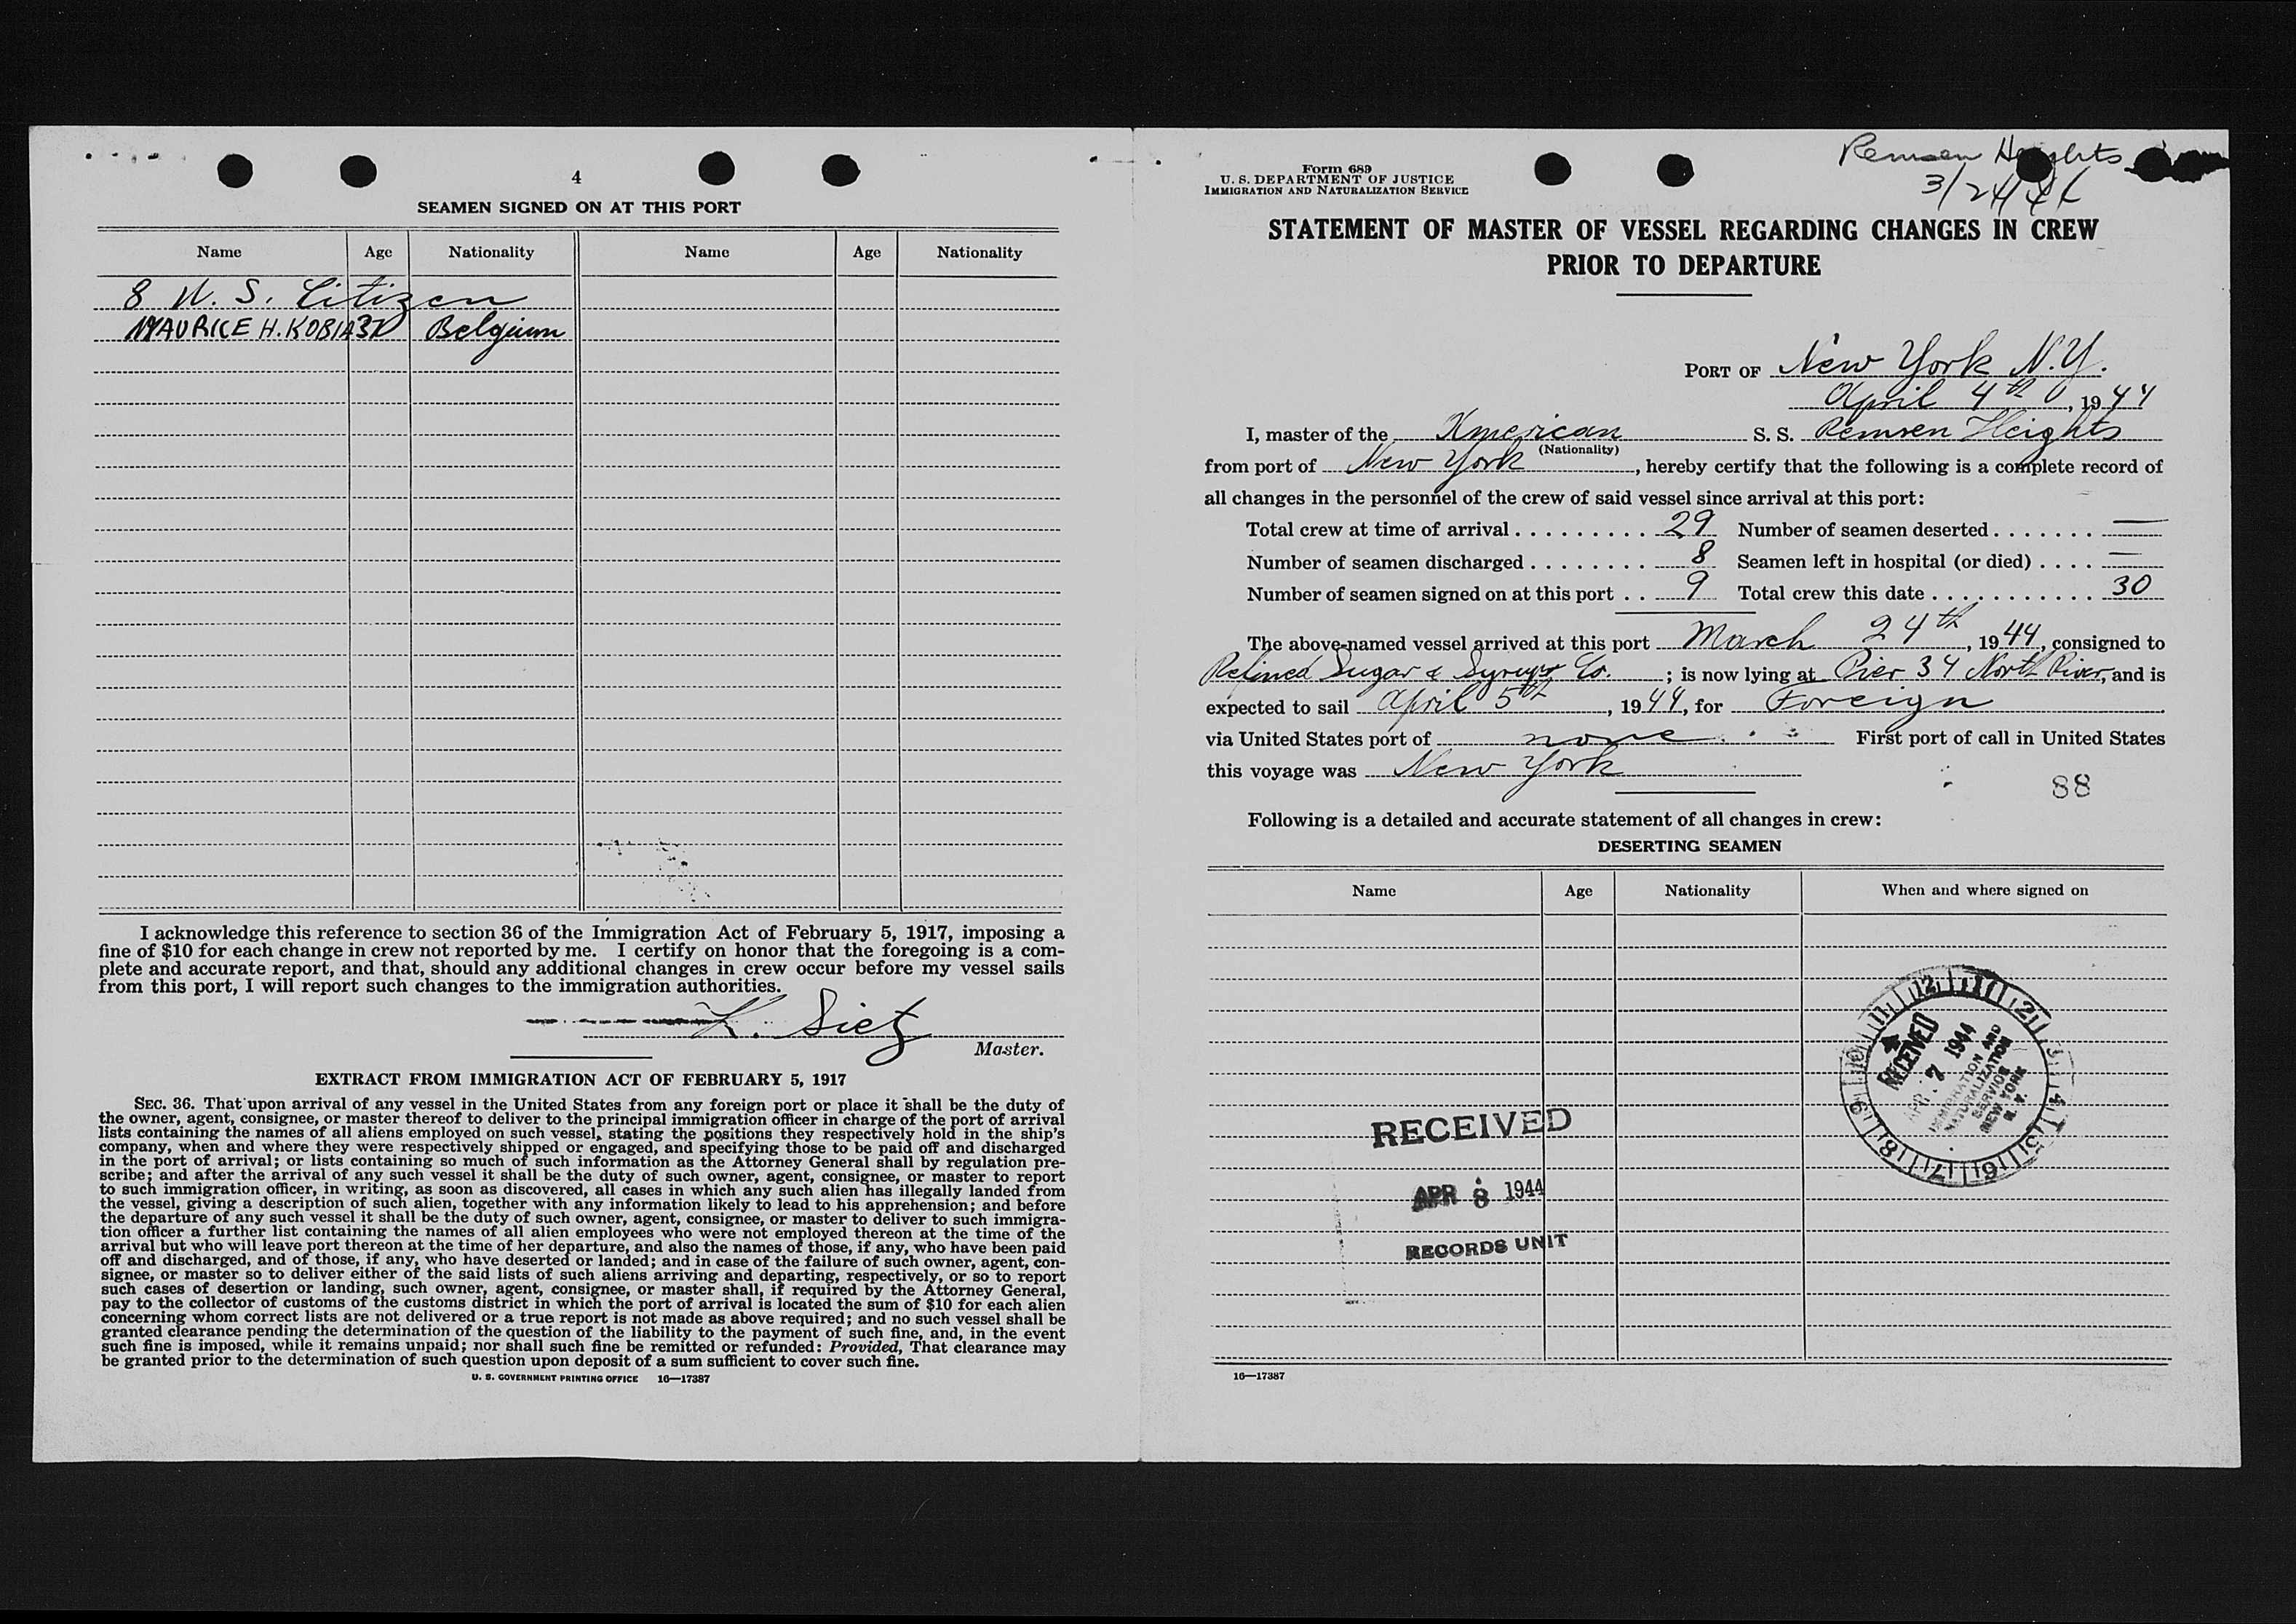 4
SEAMEN SIGNED ON AT THIS PORT
Name Age Nationality Name Age Nationality
8 U. S. Citizen
MAURICE H. KOBIA Belgium
I acknowledge this reference to section 36 of the Immigration Act of February 5, 1917, imposing a
fine of $10 for each change in crew not reported by me. I certify on honor that the foregoing is a com-
plete and accurate report, and that, should any additional changes in crew occur before my vessel sails
from this port, I will report such changes to the immigration authorities.
K. Sietz
Master.
EXTRACT FROM IMMIGRATION ACT OF FEBRUARY 5, 1917
SEC. 36. That upon arrival of any vessel in the United States from any foreign port or place it shall be the duty of
the owner, agent, consignee, or master thereof to deliver to the principal immigration officer in charge of the port of arrival
lists containing the names of all aliens employed on such vessel, stating the positions they respectively hold in the ship's
company, when and where they were respectively shipped or engaged, and specifying those to be paid off and discharged
in the port of arrival; or lists containing so much of such information as the Attorney General shall by regulation pre-
scribe; and after the arrival of any such vessel it shall be the duty of such owner, agent, consignee, or master to report
to such immigration officer, in writing, as soon as discovered, all cases in which any such alien has illegally landed from
the vessel, giving a description of such alien, together with any information likely to lead to his apprehension; and before
the departure of any such vessel it shall be the duty of such owner, agent, consignee, or master to deliver to such immigra-
tion officer a further list containing the names of all alien employees who were not employed thereon at the time of the
arrival but who will leave port thereon at the time of her departure, and also the names of those, if any, who have been paid
off and discharged, and of those, if any, who have deserted or landed; and in case of the failure of such owner, agent, con-
signee, or master so to deliver either of the said lists of such aliens arriving and departing, respectively, or so to report
such cases of desertion or landing, such owner, agent, consignee, or master shall, if required by the Attorney General,
pay to the collector of customs of the customs district in which the port of arrival is located the sum of $10 for each alien
concerning whom correct lists are not delivered or a true report is not made as above required; and no such vessel shall be
granted clearance pending the determination of the question of the liability to the payment of such fine, and, in the event
such fine is imposed, while it remains unpaid; nor shall such fine be remitted or refunded: Provided, That clearance may
be granted prior to the determination of such question upon deposit of a sum sufficient to cover such fine.
U. S. GOVERNMENT PRINTING OFFICE 16—17387
Remsen Heights
3/24/44
Form 689
U. S. DEPARTMENT OF JUSTICE
IMMIGRATION AND NATURALIZATION SERVICE
STATEMENT OF MASTER OF VESSEL REGARDING CHANGES IN CREW
PRIOR TO DEPARTURE
PORT OF New York N.Y.
April 4th, 1944
I, master of the American S. S. Remsen Heights
(Nationality)
from port of New York, hereby certify that the following is a complete record of
all changes in the personnel of the crew of said vessel since arrival at this port:
Total crew at time of arrival . . . . . . . . . . 29 Number of seamen deserted . . . . . . . —
Number of seamen discharged . . . . . . . . 8 Seamen left in hospital (or died) . . . . —
Number of seamen signed on at this port . . 9 Total crew this date . . . . . . . . . . . . 30
The above-named vessel arrived at this port March 24th, 1944, consigned to
Refined Sugar & Syrups Co.; is now lying at Pier 34 North River, and is
expected to sail April 5th, 1944, for Foreign.
via United States port of none. First port of call in United States
this voyage was New York
88
Following is a detailed and accurate statement of all changes in crew:
DESERTING SEAMEN
Name Age Nationality When and where signed on
12 1 2 3 4 5 6 7 8 9 10 11
RECEIVED
APR 7 1944
IMMIGRATION AND
NATURALIZATION
SERVICE
NEW YORK
N. Y.
RECEIVED
APR 8 1944
RECORDS UNIT
16—17387